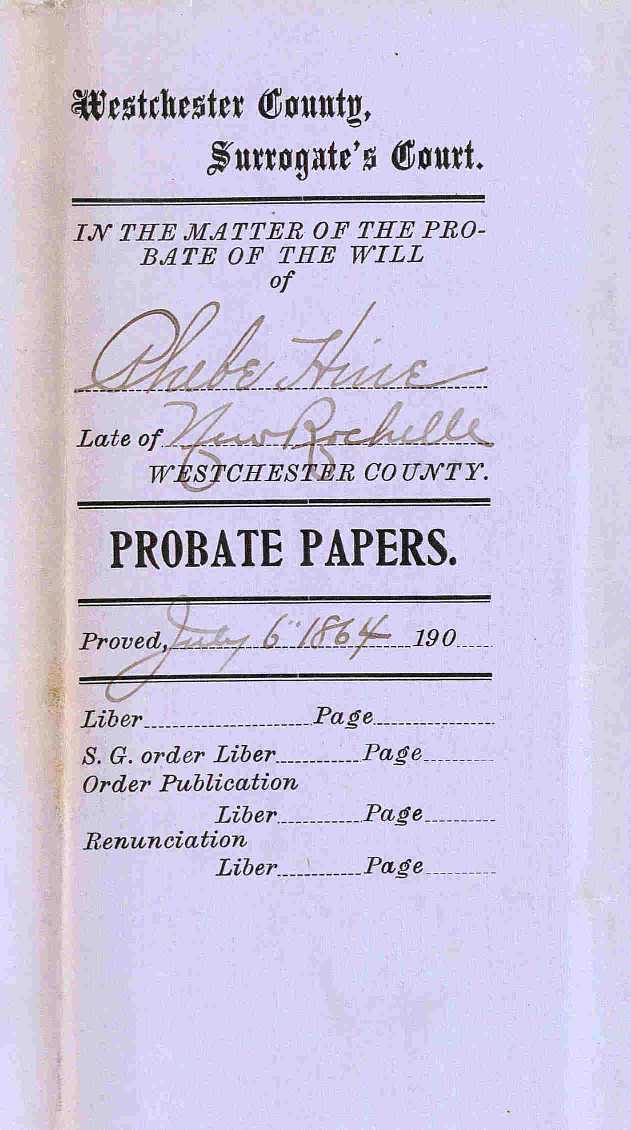 Westchester County,
Surrogate's Court.
IN THE MATTER OF THE PRO-
BATE OF THE WILL
of
Phebe Hine
Late of New Rochelle
WESTCHESTER COUNTY.
PROBATE PAPERS.
Proved, July 6" 1864 190
Liber Page
S. G. order Liber Page
Order Publication
Liber Page
Renunciation
Liber Page